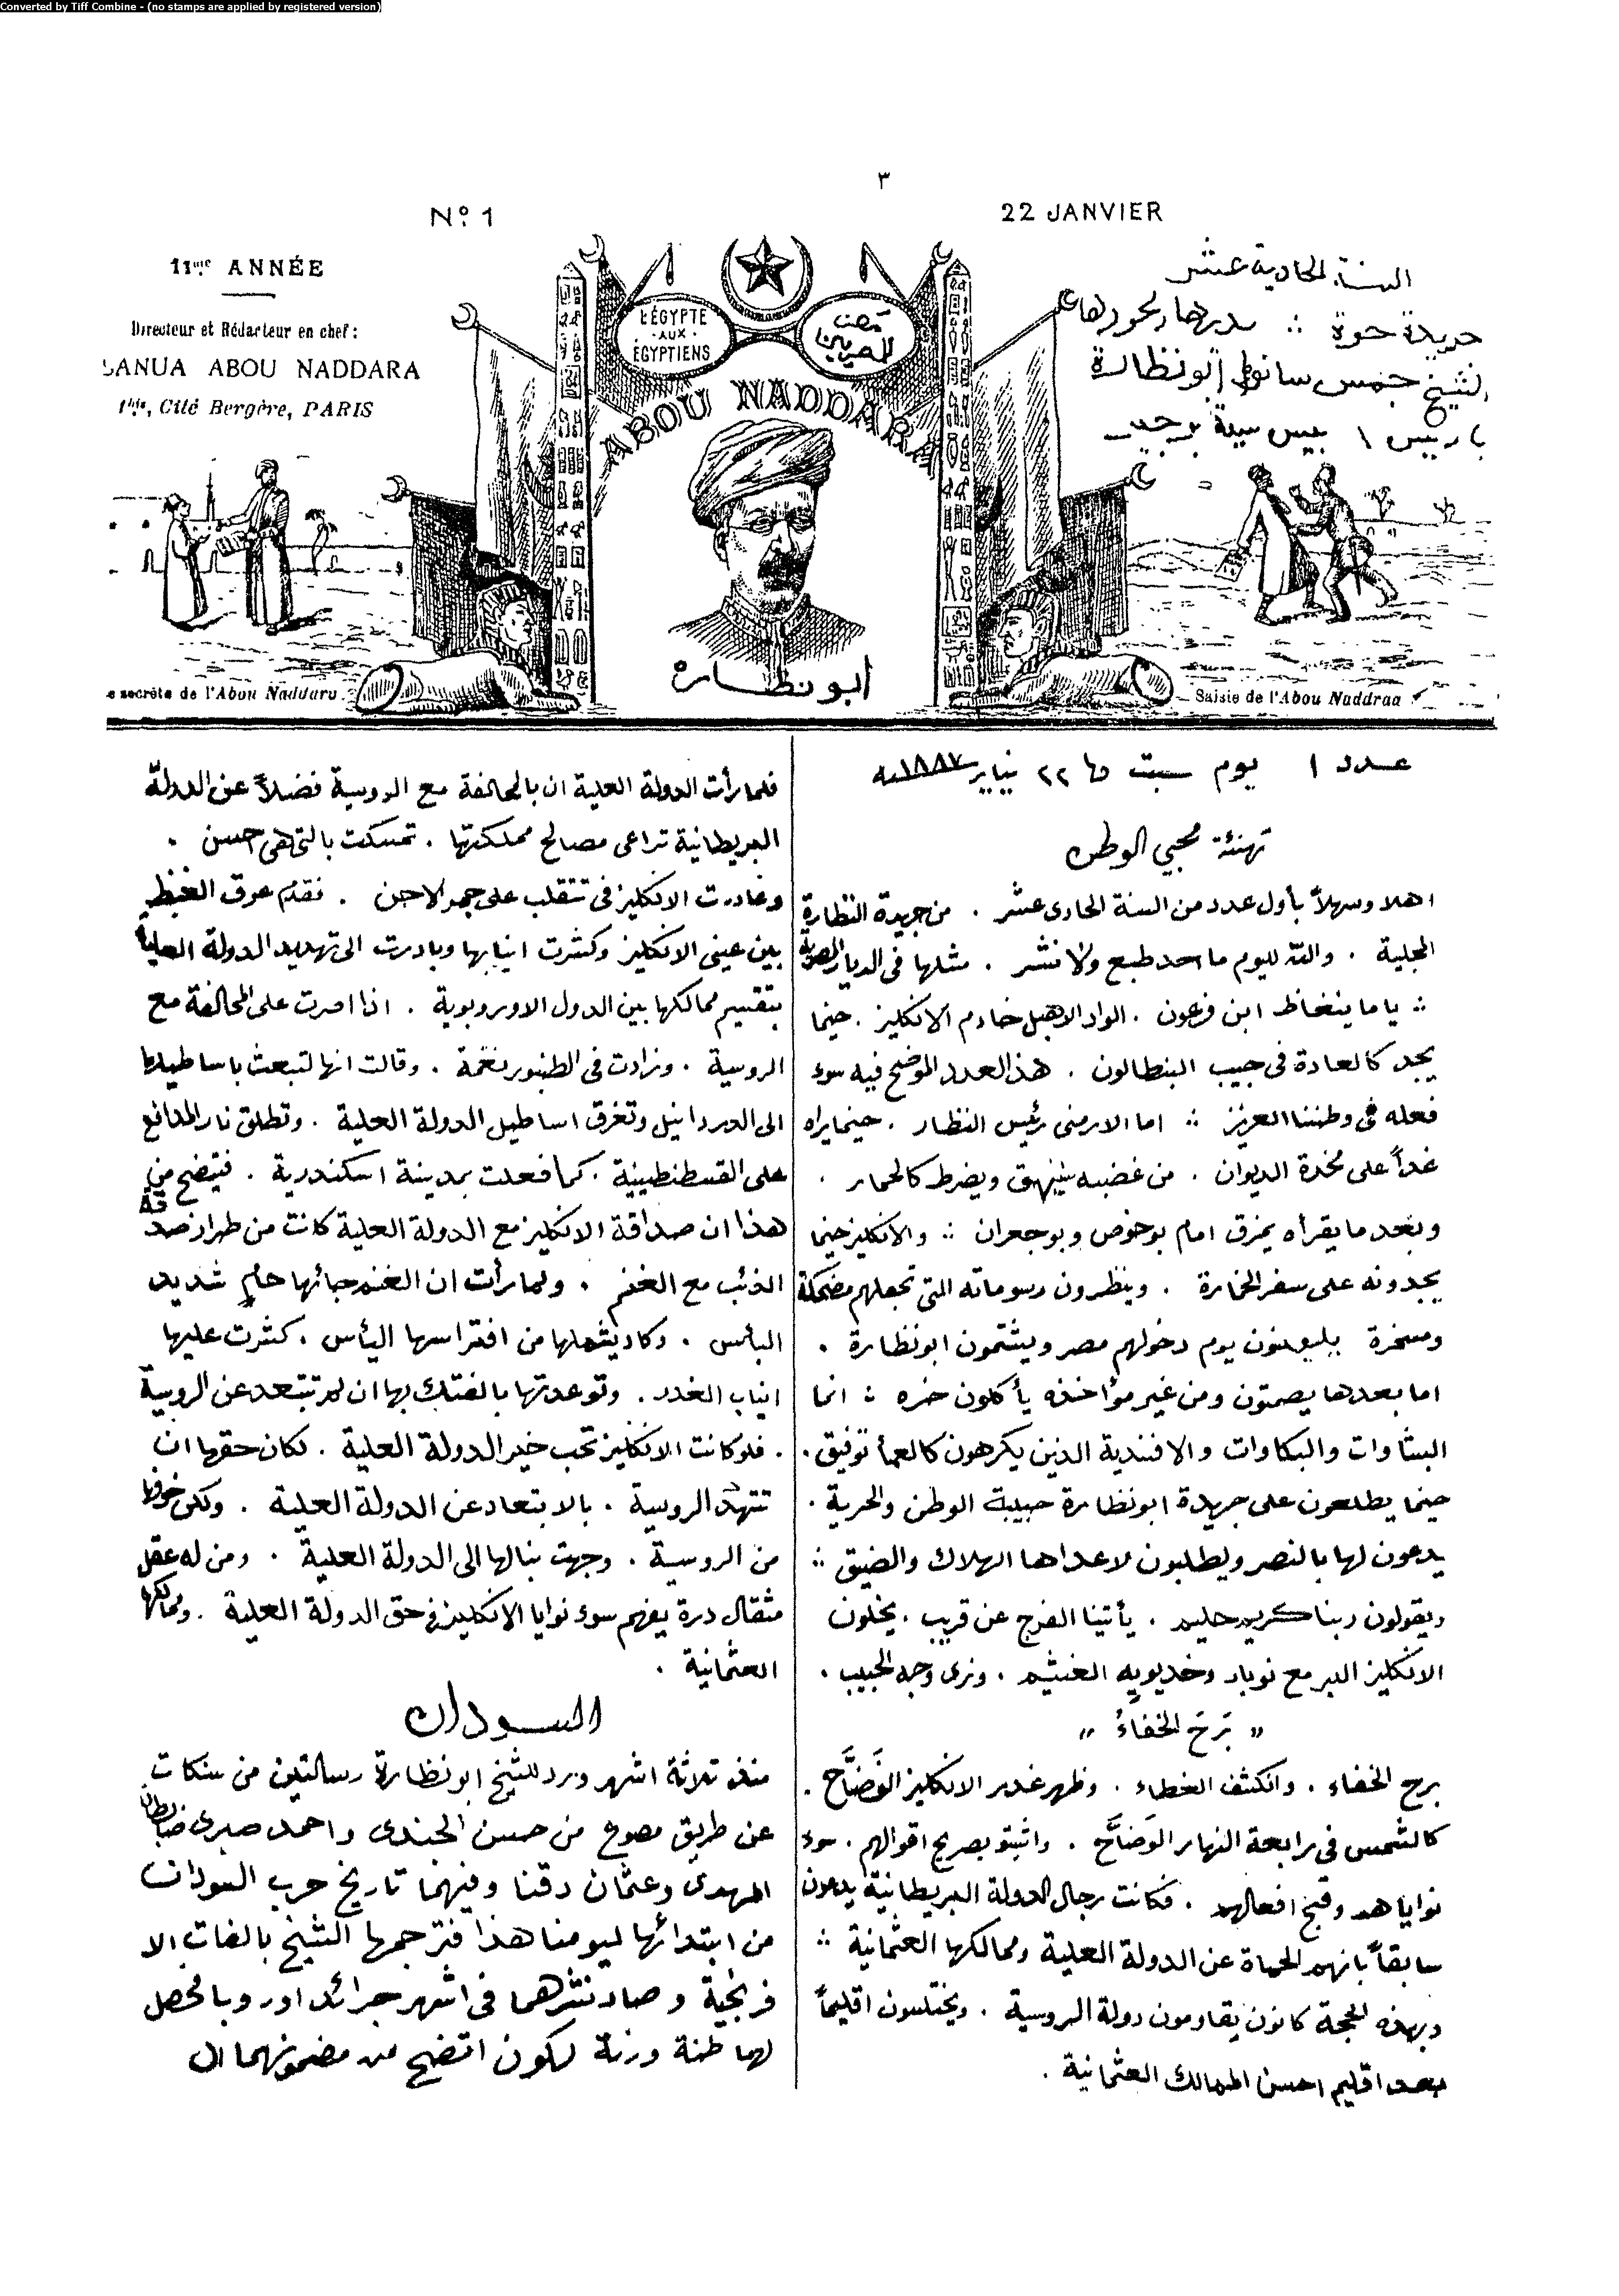 Converted by Tiff Combine - (no stamps are applied by registered version)
٣
Nº. 1
22 JANVIER
11me ANNÉE
Directeur et Rédacteur en chef:
SANUA ABOU NADDARA
1bis, Cité Bergère, PARIS
السنة الحادية عشر
جريدة حرة ∴ مديرها ومحررها
الشيخ جمس سانوا ابونظارة
باريس ١ بيس سيتة برجير
L'ÉGYPTE
AUX
ÉGYPTIENS
مصر
للمصريين
ABOU NADDARA
ابو نظاره
e secrète de l'Abou Naddara
Saisie de l'Abou Naddraa
عدد ١ يوم سبت فى ٢٢ يناير ١٨٨٧ سنه
تهنئة محبي الوطن
اهلا وسهلاً بأول عدد من السنة الحادى عشر . من جريدة النظارة
المجلية . والله لليوم ما احد طبع ولا نشر . مثلها فى الديار المصرية
∴ ياما ينغاظ ابن فرعون . الواد الاهبل خادم الانكليز . حينما
يجد كالعادة فى جيب البنطالون . هذا العدد الموضح فيه سوء
فعله فى وطننا العزيز ∴ اما الارمنى رئيس النظار . حينما يراه
غداً على مخدة الديوان . من غضبه ينهق ويضرط كالحمار .
وبعد ما يقرأه يمزق امام بوخوص وبوجعران ∴ والانكليز حينما
يجدونه على سفر الخمارة . وينظرون رسوماته التى تجعلهم مضحكة
ومسخرة يلعنون يوم دخولهم مصر ويشتمون ابونظارة .
اما بعدها يصمتون ومن غير مؤاخذه يأكلون خره ∴ انما
البشاوات والبكاوات والافندية الذين يكرهون كالعمأ توفيق .
حينما يطلعون على جريدة ابونظارة حبيبة الوطن والحرية .
يدعون لها بالنصر ويطلبون لاعداها الهلاك والضيق ∴
ويقولون ربنا كريم حليم . يأتينا الفرج عن قريب . يخلون
الانكليز البر مع نوبار وخديويه الغشيم . ونرى وجه الحبيب .
« بَرَحَ الخفاءُ »
برح الخفاء . وانكشف الغطاء . وظهر غدر الانكليز الفَضَّاح .
كالشمس فى رابعة النهار الوَضَّاح . واثبتو بصريح اقوالهم . سوء
نواياهم وقبح افعالهم . فكانت رجال الدولة البريطانية يدعون
سابقاً بانهم الحماة عن الدولة العلية وممالكها العثمانية ∴
وبهذه الحجة كانون يقاومون دولة الروسية . ويختلسون اقليماً
بعد اقليم احسن الممالك العثمانية .
فلما رأت الدولة العلية ان بالمحالفة مع الروسية فضلاً عن الدولة
البريطانية تراعى مصالح مملكتها . تمسكت بالتى هى احسن .
وغادرت الانكليز فى تتقلب على جمر الاحن . فقدم عوق الغيظ
بين عينى الانكليز وكشرت انيابها وبادرت الى تهديد الدولة العلية
بتقسيم ممالكها بين الدول الاوروبوية . اذا اصرت على المحالفة مع
الروسية . وزادت فى الطنبور نغمة . وقالت انها لتبعث باساطيلها
الى الدردانيل وتغرق اساطيل الدولة العلية . وتطلق نار المدافع
على القسطنطينية . كما فعلت بمدينة اسكندرية . فيتضح من
هذا ان صداقة الانكليز مع الدولة العلية كانت من طراز صداقة
الذئب مع الغنم . ولما رأت ان الغنم جائها حامٍ شديد
البأس . وكاد يشملها من افتراسها اليأس . كشرت عليها
انياب الغدر . وتوعدتها بالفتك بها ان لم تبتعد عن الروسية
. فلو كانت الانكليز تحب خير الدولة العلية . لكان حقها ان
تتهدّد الروسية . بالابتعاد عن الدولة العلية . ولكن خوفها
من الروسية . وجهت بنالها الى الدولة العلية . ومن له عقل
مثقال درة يفهم سوء نوايا الانكليز فى حق الدولة العلية . وممالكها
العثمانية .
السودان
منذ ثلاثة اشهر ورد للشيخ ابونظارة رسالتين من سنكات
عن طريق مصوع من حسن الجندى واحمد صبرى ضابطان
المهدى وعثمان دقنا وفيهما تاريخ حرب السودان
من ابتدائها ليومنا هذا فترجمها الشيخ بالغات الا
فرنجية وصار نشرهما فى اشهر جرائد اوروبا فحصل
لهما طنة ورنة لكون اتضح من مضمونهما ان